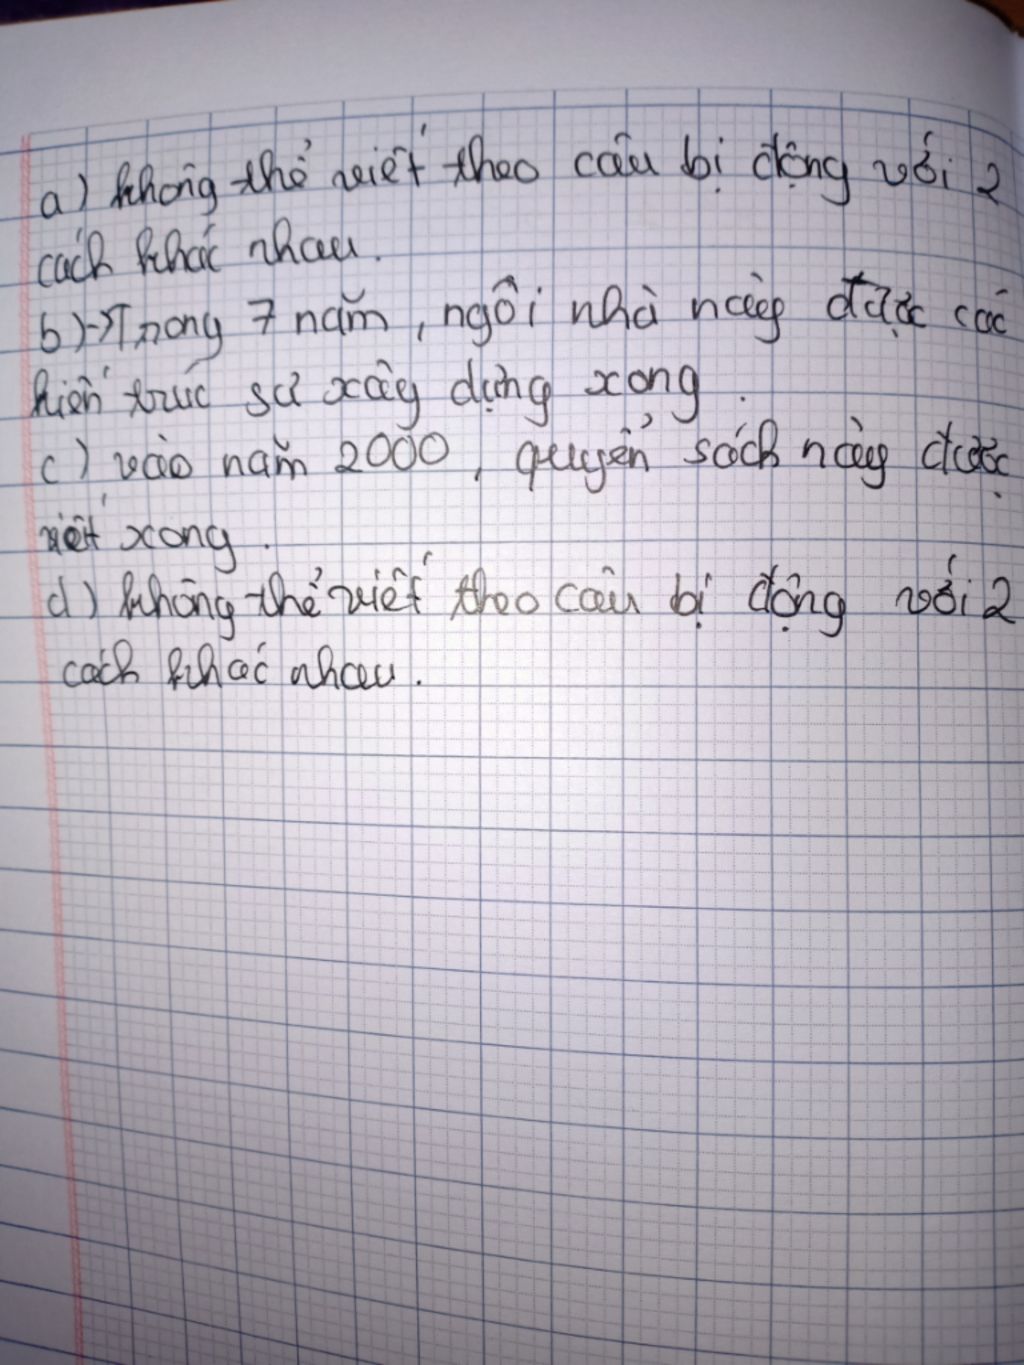 a) không thể viết theo câu bị động với 2
cách khác nhau.
b) - Trong 7 năm, ngôi nhà này được các
kiến trúc sư xây dựng xong.
c) vào năm 2000, quyển sách này được
viết xong.
d) không thể viết theo câu bị động với 2
cách khác nhau.